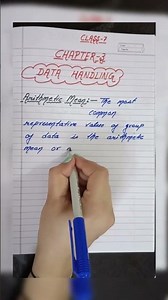 CLASS-7
CHAPTER-3
DATA HANDLING
Arithmetic Mean:- The most
common
representative value of group
of data is the arithmetic
mean or a